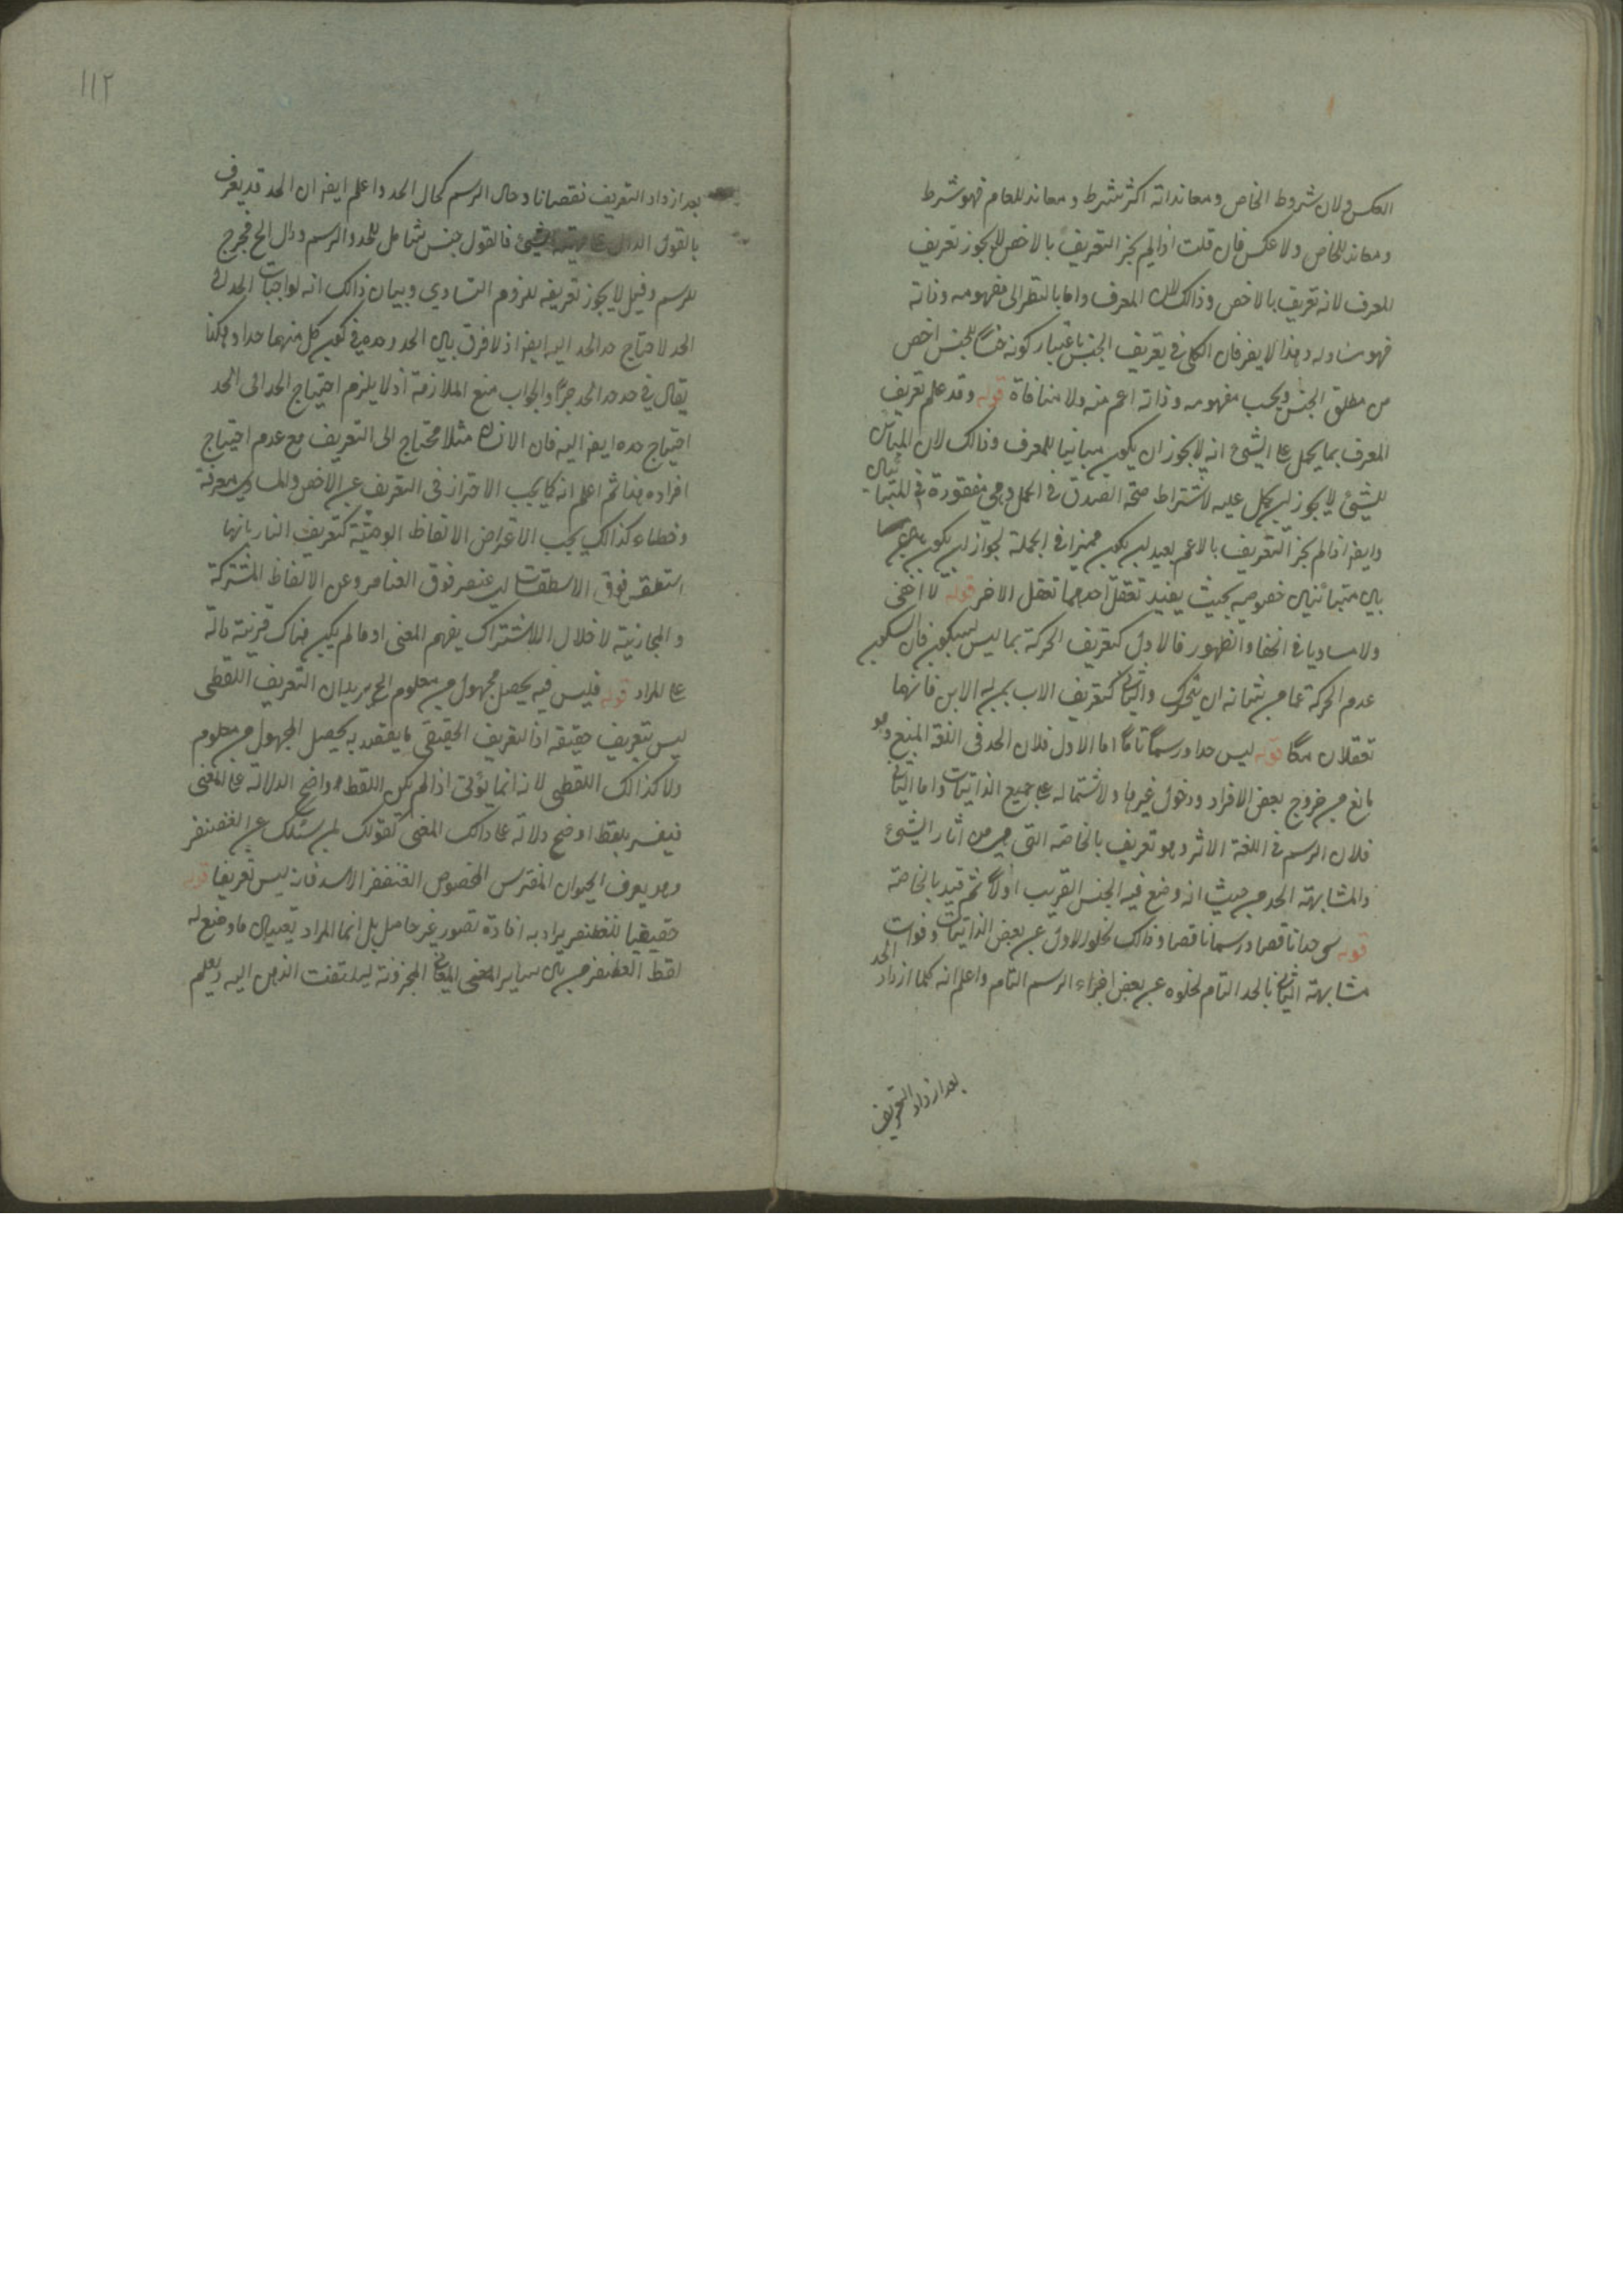 العكس ولان شروط الخاص ومعانداته اكثر شرط ومعاند للعام فهو شرط
ومعاند للخاص ولا عكس فان قلت اذا لم يجز التعريف بالاخص لا يجوز تعريف
المعرف لانه تعريف بالاخص وذالك لان المعرف واما بالنظر الى مفهومه وذاته
فهو مساو له وهذا لا يضر فان الكلي في تعريف الجنس باعتبار كونه جنسا للجنس اخص
من مطلق الجنس وبحسب مفهومه وذاته اعم منه ولا منافاة قوله وقد علم تعريف
المعرف بما يحمل على الشيئ انه لا يجوز ان يكون مباينا للمعرف وذالك لان المباين
للشيئ لا يجوز ان يحمل عليه لاشتراط صحة الصدق في الحمل وهي مفقودة في المتباينين
وايضا اذا لم يجز التعريف بالاعم لبعد ان يكون مميزا في الجملة لجواز ان يكون
بين متبائنين خصوصيه بحيث يفيد تعقل احدهما تعقل الاخر قوله لا اخفى
ولا مساويا في الخفا والظهور فالاول كتعريف الحركة بما ليس بسكون فان السكون
عدم الحركة عما من شانه ان يتحرك والثاني كتعريف الاب بمن له الابن فانهما
تعقلان معًا قوله ليس حدا ورسمًا تامًا اما الاول فلان الحد في اللغة المنع وهو
مانع من خروج بعض الافراد ودخول غيرها ولاشتماله على جميع الذاتيات واما الثاني
فلان الرسم في اللغة الاثر وهو تعريف بالخاصة التي هي من اثار الشيئ
والمشابهته الحد من حيث انه وضع فيه الجنس القريب اولًا ثم قيد بالخاصة
قوله سمى حدا ناقصا ورسما ناقصا وذالك لخلو الاول عن بعض الذاتيات وفوات
مشابهته الثاني بالحد التام لخلوه عن بعض اجزاء الرسم التام واعلم انه كلما ازداد الحد
بعدا زداد التعريف
١١٢
بعدا زداد التعريف نقصانا وحال الرسم كحال الحد واعلم ايضا ان الحد قد يعرف
بالقول الدال على ماهية الشيئ فالقول جنس شامل للحد والرسم ودال الخ مخرج
للرسم وقيل لا يجوز تعريفه للزوم التساوي وبيان ذالك انه لو احتاج الحد الى
الحد لاحتاج حد الحد اليه ايضا اذ لا فرق بين الحد وحده في كون كل منهما حدا وهكذا
يقال في حد حد الحد جرًا والجواب منع الملازمة اذ لا يلزم احتياج الحد الى الحد
احتياج حده ايضا اليه فان الانسان مثلا محتاج الى التعريف مع عدم احتياج
افراده هذا ثم اعلم انه كما يجب الاحتراز في التعريف عن الاخص والمساوي معرفة
وخطاء كذالك يجب الاعراض الالفاظ الوحشية كتعريف النار بانها
اسطقس فوق الاسطقسات اي عنصر فوق العناصر وعن الالفاظ المشتركة
والمجازية لاخلال الاشتراك بفهم المعنى او ما لم يكن هناك قرينة دالة
على المراد قوله فليس فيه تحصيل مجهول من معلوم الخ يريد ان التعريف اللفظي
ليس بتعريف حقيقه اذ التعريف الحقيقي ما يقصد به تحصيل المجهول من معلوم
ولا كذالك اللفظي لانه انما يؤتى اذا لم يكن اللفظ واضح الدلالة على المعنى
فيفسر بلفظ اوضح دلالة على ذالك المعنى كقولك لمن سئلك عن الغضنفر
وهو يعرف الحيوان المفترس المخصوص الغضنفر الاسد فانه ليس تعريفا قوله
حقيقيا للغضنفر يراد به افادة تصور غير حاصل بل انما المراد تعيين ما وضع له
لفظ الغضنفر من بين ساير المعاني المخزونة ليلتفت الذهن اليه ويعلم